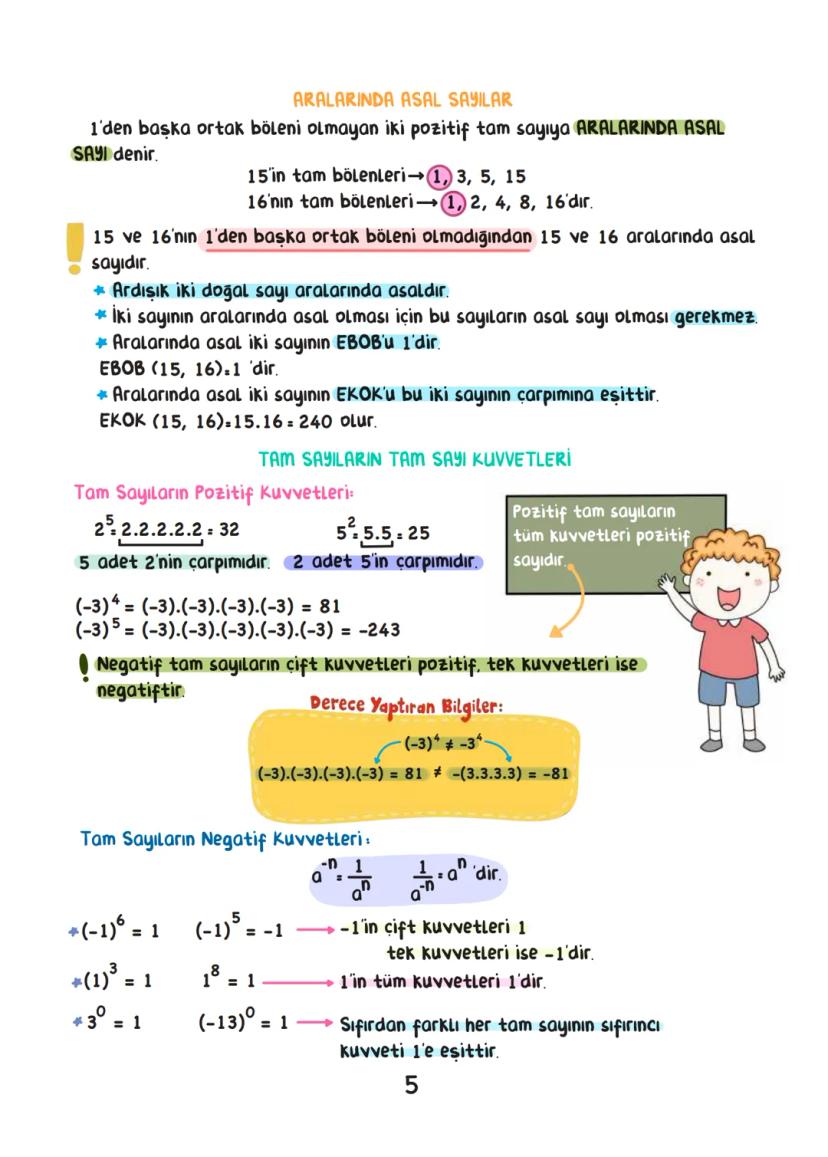 ARALARINDA ASAL SAYILAR
1'den başka ortak böleni olmayan iki pozitif tam sayıya ARALARINDA ASAL
SAYI denir.
15'in tam bölenleri→1, 3, 5, 15
16'nın tam bölenleri→1, 2, 4, 8, 16'dır.
! 15 ve 16'nın 1'den başka ortak böleni olmadığından 15 ve 16 aralarında asal
sayıdır.
* Ardışık iki doğal sayı aralarında asaldır.
* İki sayının aralarında asal olması için bu sayıların asal sayı olması gerekmez.
* Aralarında asal iki sayının EBOB'u 1'dir.
EBOB (15, 16)=1 'dir.
* Aralarında asal iki sayının EKOK'u bu iki sayının çarpımına eşittir.
EKOK (15, 16)=15.16 = 240 olur.
TAM SAYILARIN TAM SAYI KUVVETLERİ
Tam Sayıların Pozitif Kuvvetleri:
2⁵=2.2.2.2.2 = 32 5²=5.5 = 25
5 adet 2'nin çarpımıdır. 2 adet 5'in çarpımıdır.
Pozitif tam sayıların
tüm kuvvetleri pozitif
sayıdır.
(-3)⁴ = (-3).(-3).(-3).(-3) = 81
(-3)⁵ = (-3).(-3).(-3).(-3).(-3) = -243
! Negatif tam sayıların çift kuvvetleri pozitif, tek kuvvetleri ise
negatiftir.
Derece Yaptıran Bilgiler:
(-3)⁴ ≠ -3⁴
(-3).(-3).(-3).(-3) = 81 ≠ -(3.3.3.3) = -81
Tam Sayıların Negatif Kuvvetleri:
a⁻ⁿ = 1/aⁿ 1/a⁻ⁿ = aⁿ 'dir.
*(-1)⁶ = 1 (-1)⁵ = -1 → -1'in çift kuvvetleri 1
tek kuvvetleri ise -1'dir.
*(1)³ = 1 1⁸ = 1 → 1'in tüm kuvvetleri 1'dir.
* 3⁰ = 1 (-13)⁰ = 1 → Sıfırdan farklı her tam sayının sıfırıncı
kuvveti 1'e eşittir.
5